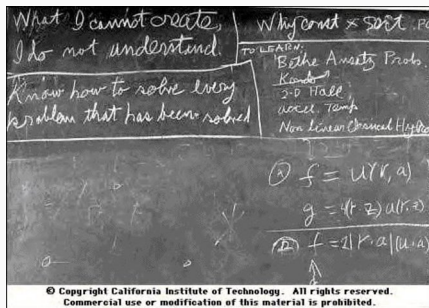 What I cannot create,
I do not understand.
Know how to solve every
problem that has been solved
Why const × sort . PO
TO LEARN:
Bethe Ansatz Prob.
Kondo
2-D Hall
accel. Temp
Non Linear Classical Hydro
Ⓐ f = u(r, a)
g = 4(r·z) u(r, z)
Ⓑ f = 2|r·a|(u·a)
© Copyright California Institute of Technology. All rights reserved.
Commercial use or modification of this material is prohibited.